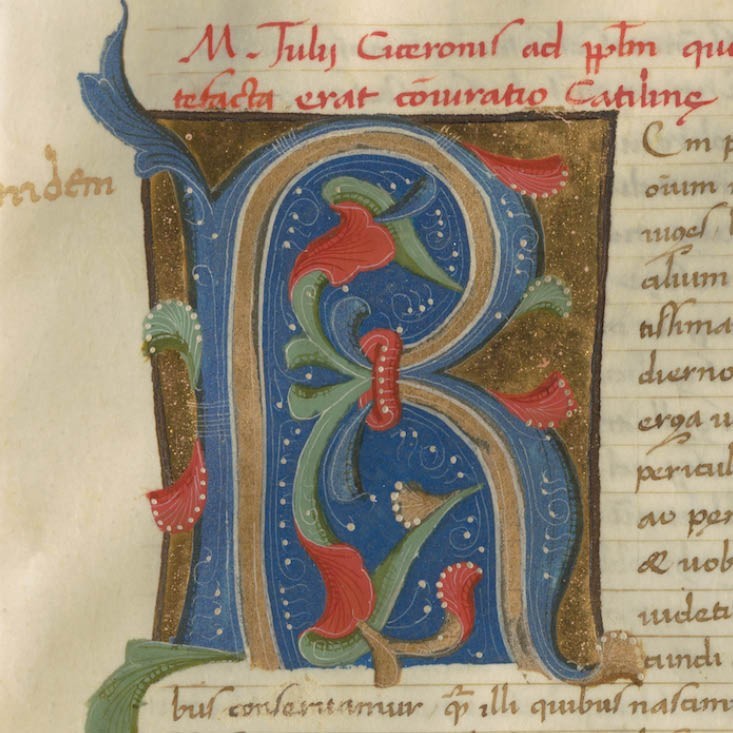 M. Tulij Ciceronis ad ppl̄m qu
tefacta erat cōiuratio Catilinę
ndem
R
Em p
oīum
iuges
alium
tissima
dierno
erga u
pericul
ac per
& uob
uideti
cundi
bus conseruamur q̄ illi quibus nascim